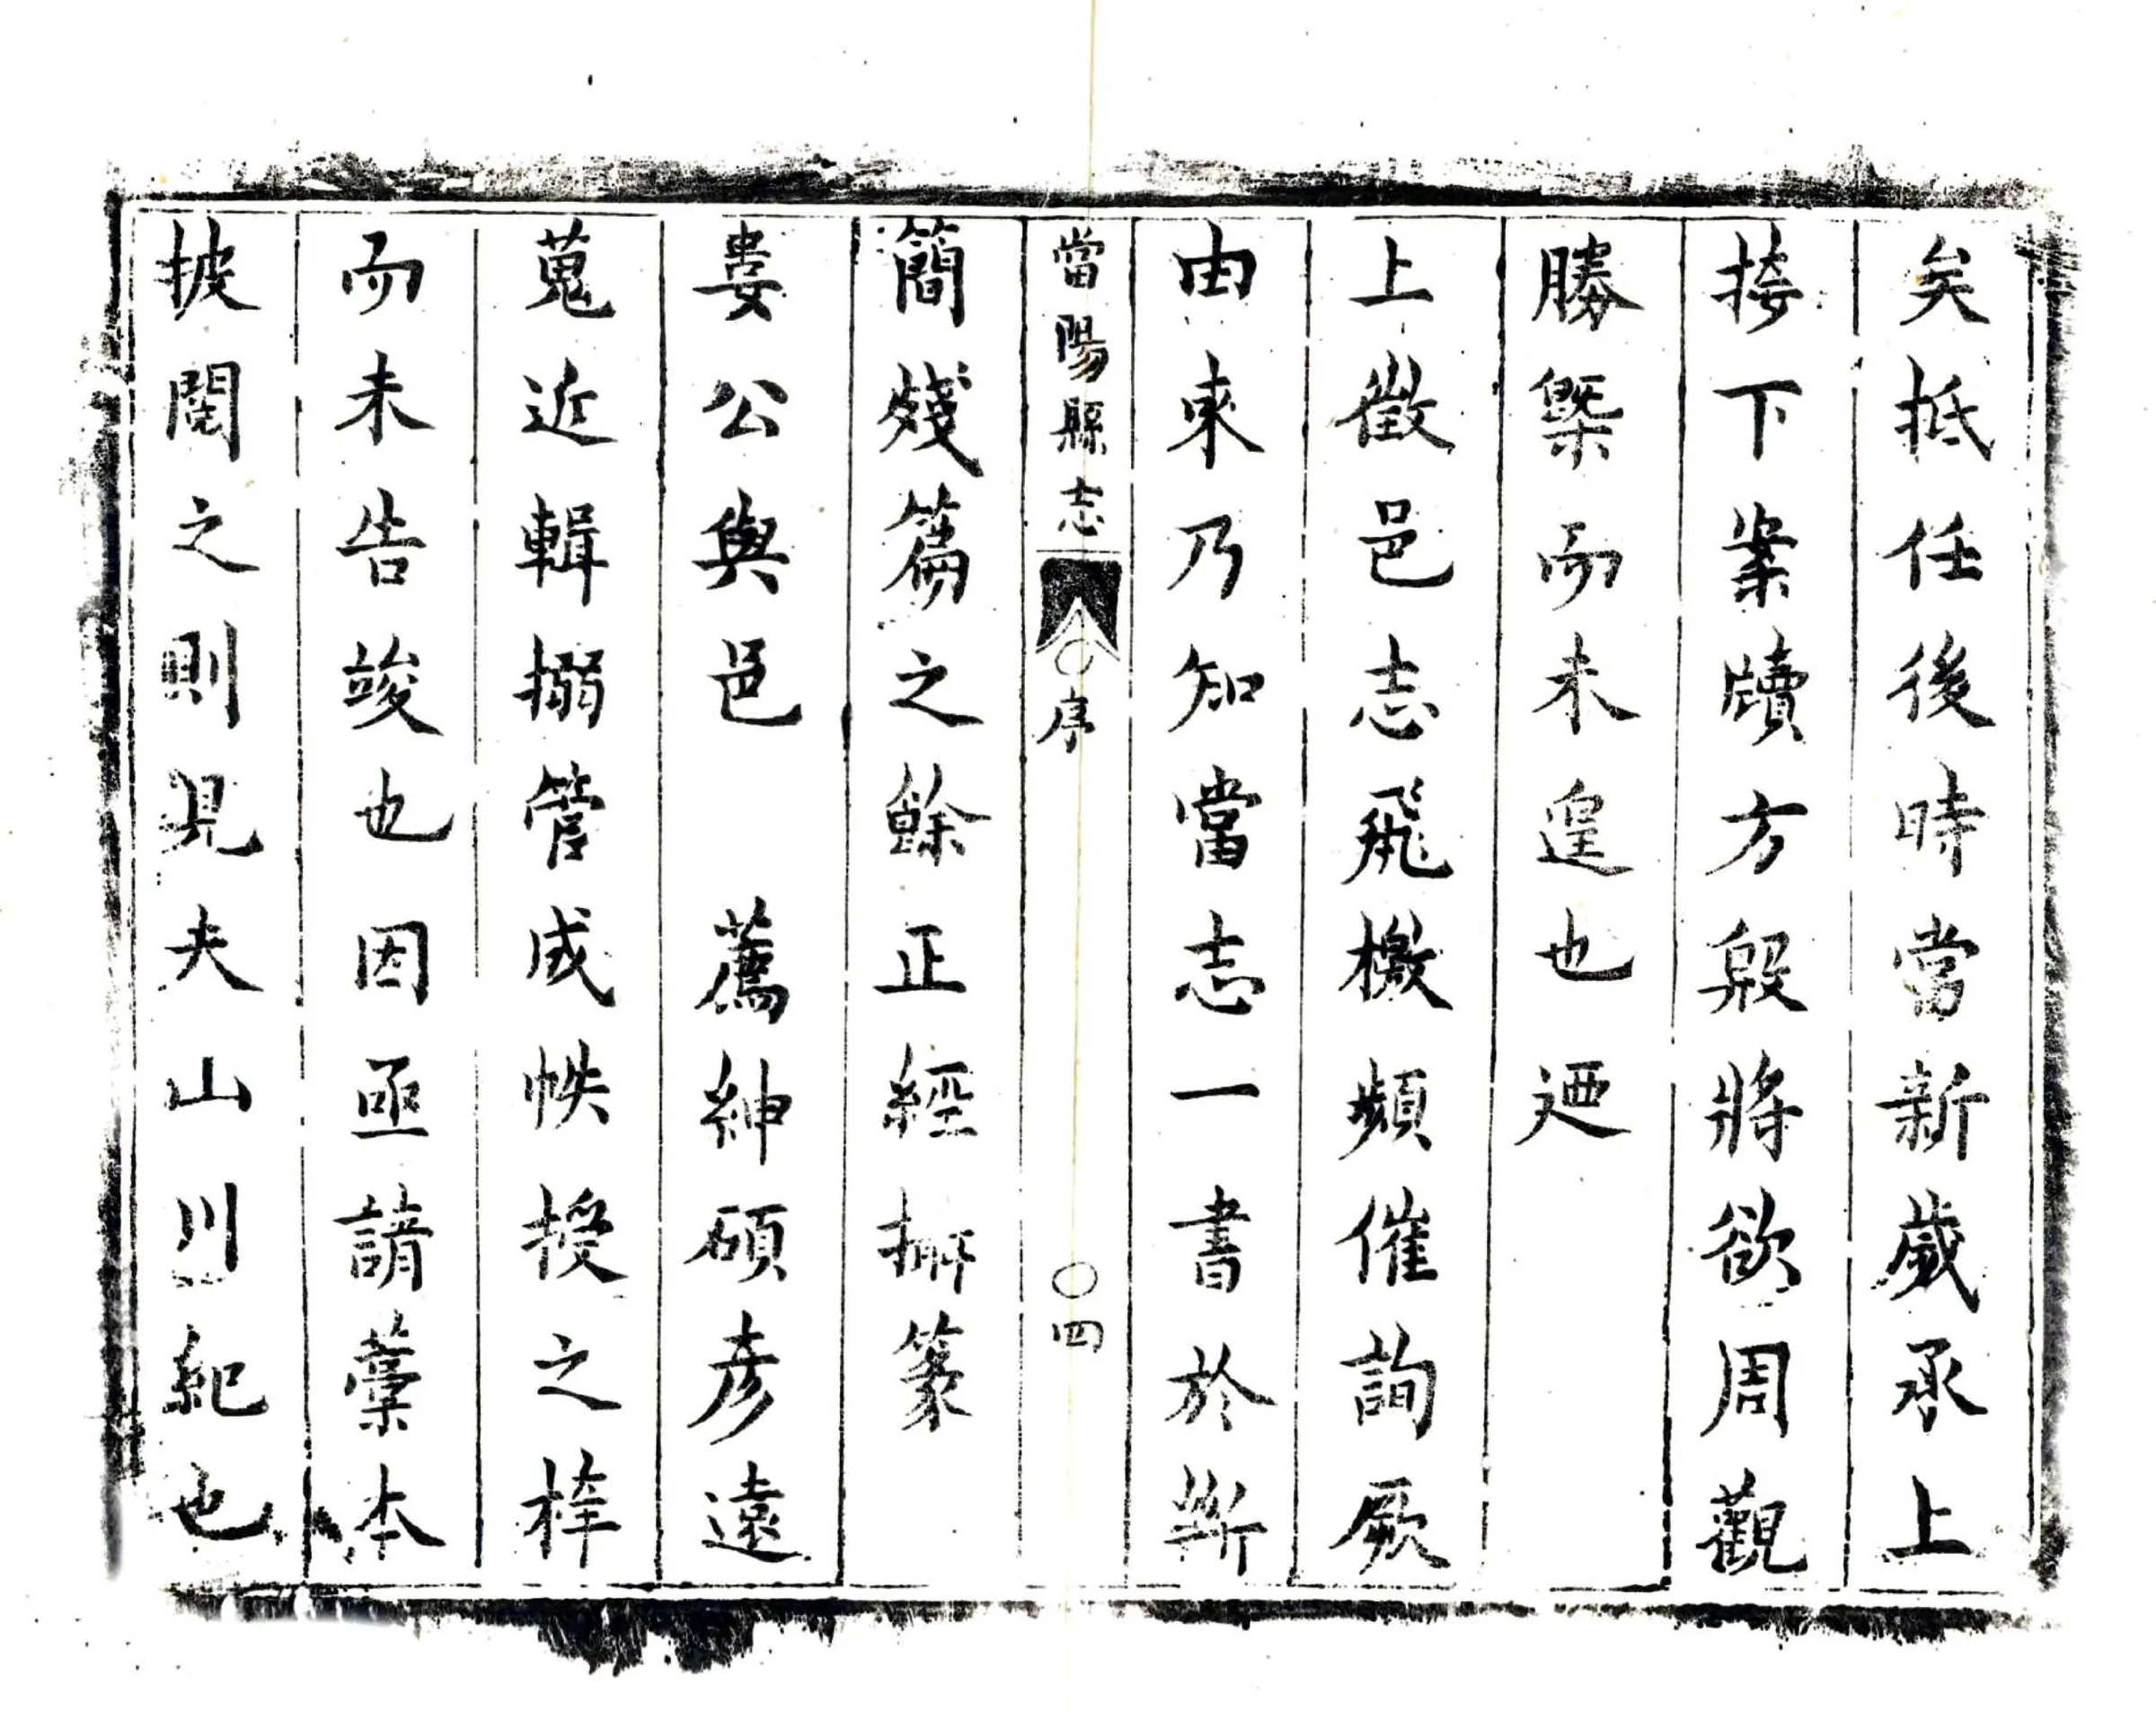 矣抵任後時當新歲承上
接下案牘方殷將欲周觀
勝槩而未遑也迺
上徵邑志飛檄頻催詢厥
由來乃知當志一書於斷
當陽縣志 〇序 〇四
簡殘篇之餘正經掰篆
婁公與邑 薦紳碩彥遠
蒐近輯搦管成帙授之梓
而未告竣也因亟請藁本
披閱之則見夫山川紀也